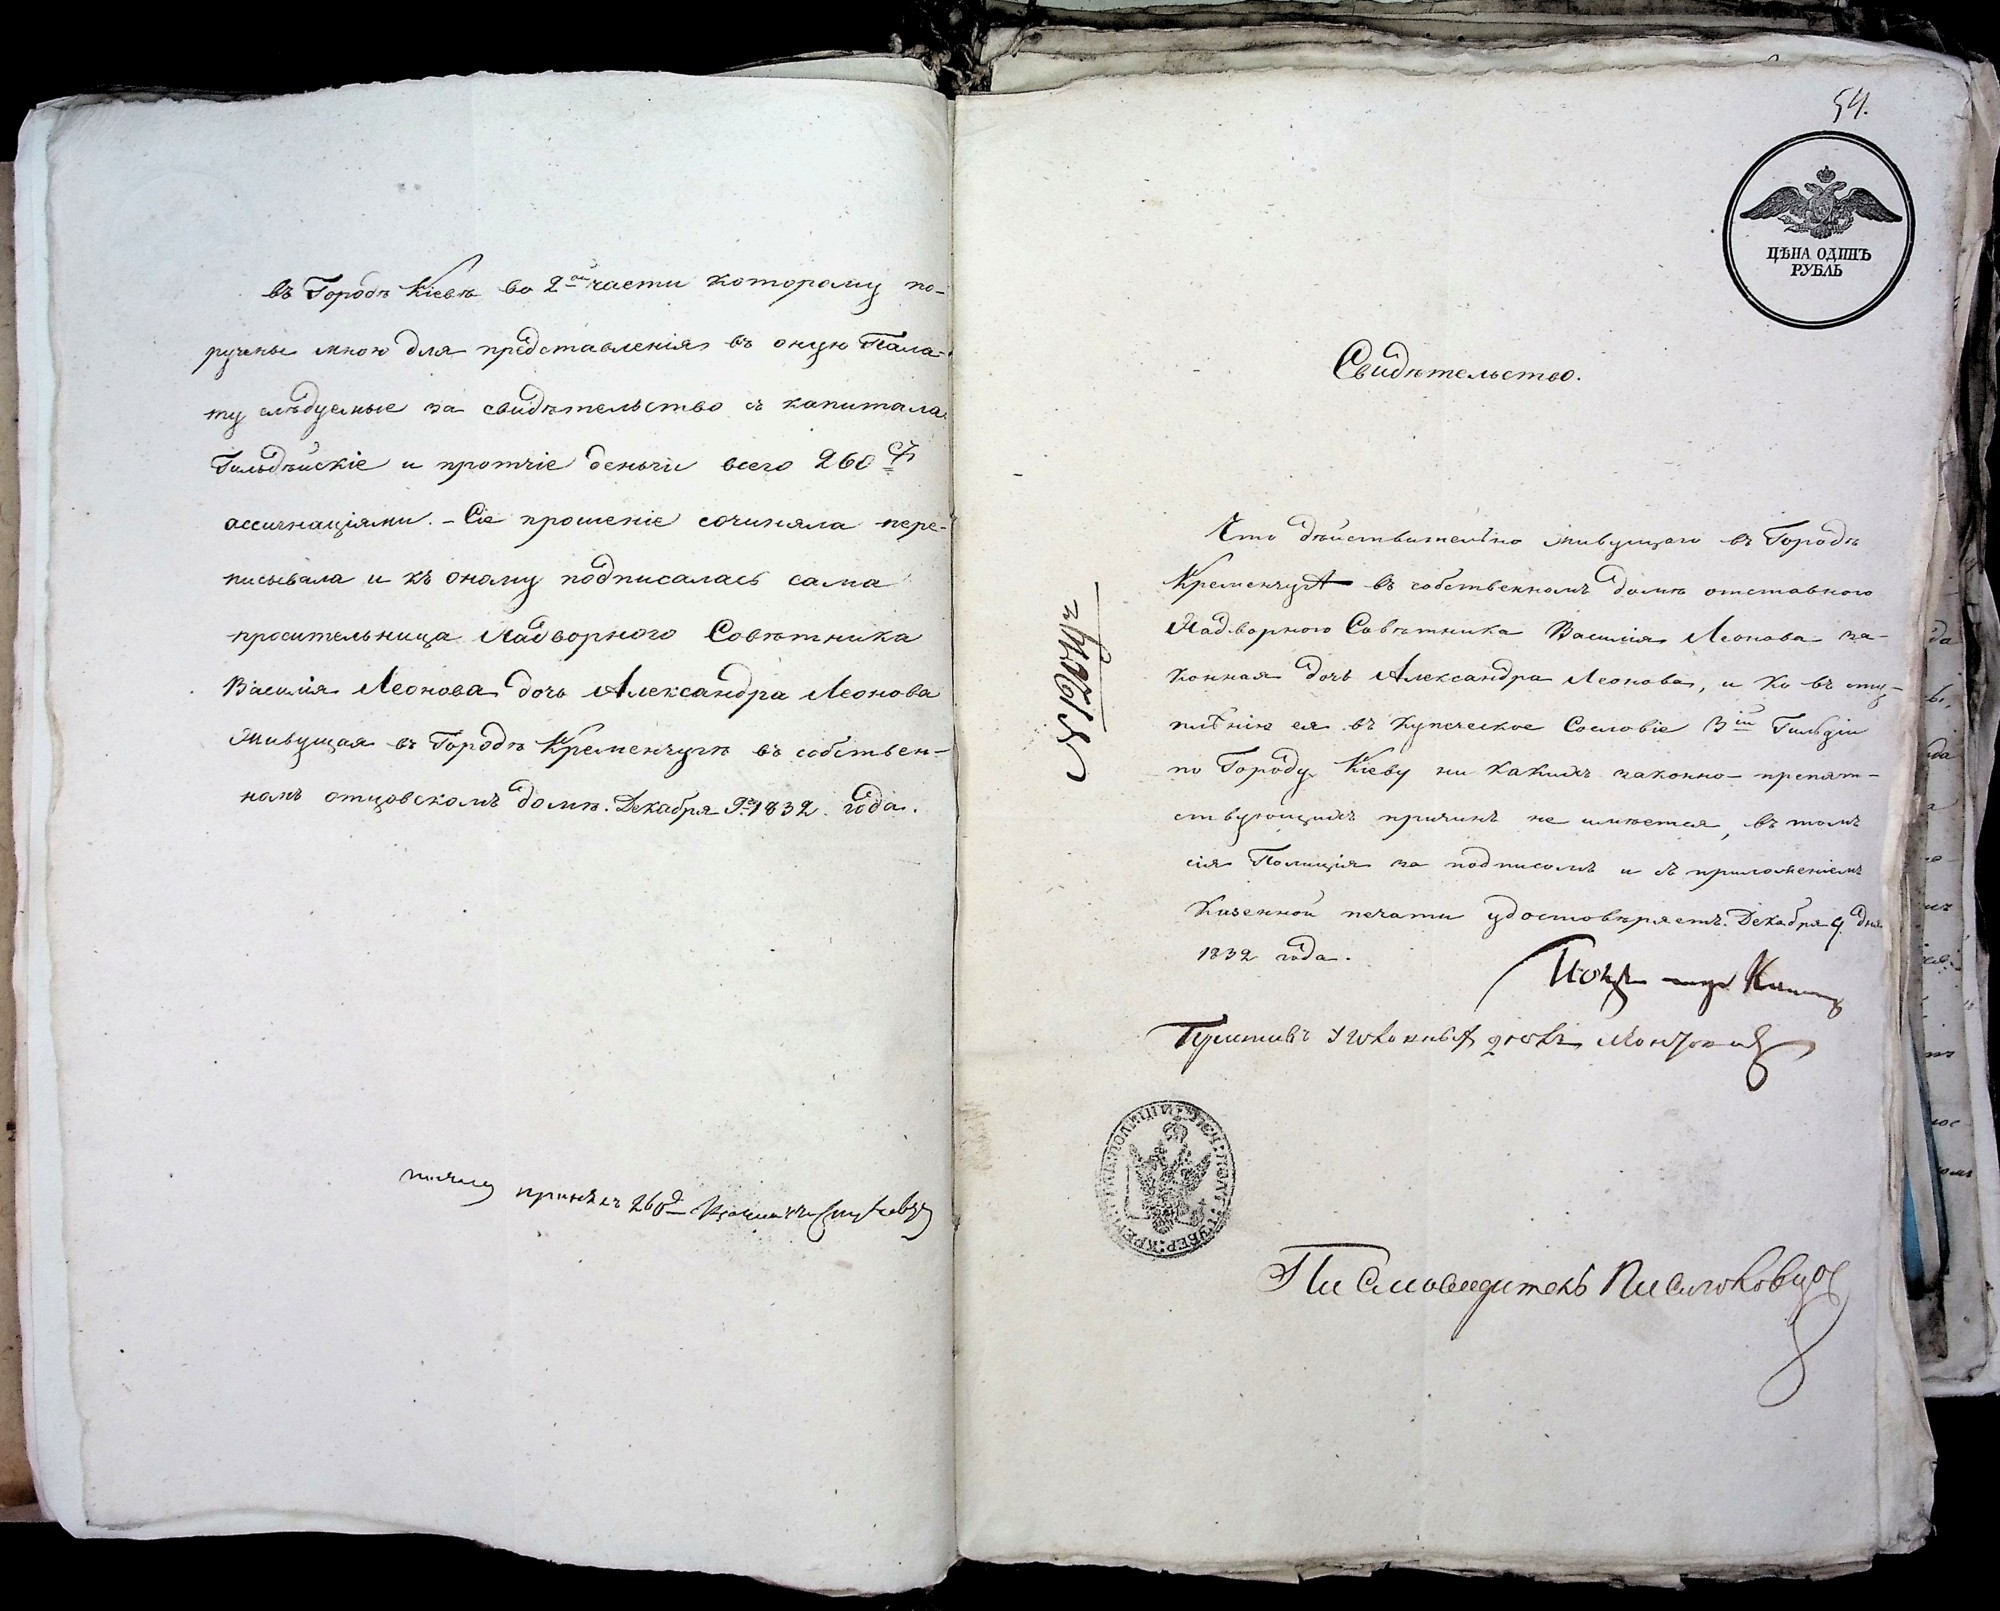 въ Городѣ Кіевѣ во 2ой части которому по-
ручены мною для представленія въ оную Пала-
ту слѣдуемые за свидѣтельство съ капитала
Гильдѣйскіе и протчіе деньги всего 260
ассигнаціями. – Сіе прошеніе сочиняла пере-
писывала и къ оному подписалась сама
просительница Надворного Совѣтника
Василія Леонова дочь Александра Леонова
Живущая въ Городѣ Кременчугѣ въ собствен-
номъ отцовскомъ домѣ. Декабря 9го 1832 года.
принялъ 260
54.
ЦѢНА ОДИНЪ
РУБЛЬ
Свидѣтельство.
Что дѣйствительно живущаго въ Городѣ
Кременчугѣ въ собственномъ домѣ отставного
Надворного Совѣтника Василія Леонова за-
конная дочь Александра Леонова, и ко въ сту-
плѣнію ея въ купеческое Сословіе 3ій Гильдіи
по Городу Кіеву ни какихъ законно-препят-
ствующихъ причинъ не имѣется, въ томъ
сія Полиція за подписомъ и съ приложеніемъ
Казенной печати удостовѣряетъ. Декабря 9 дня
1832 года.
Приставъ
Письмоводитель